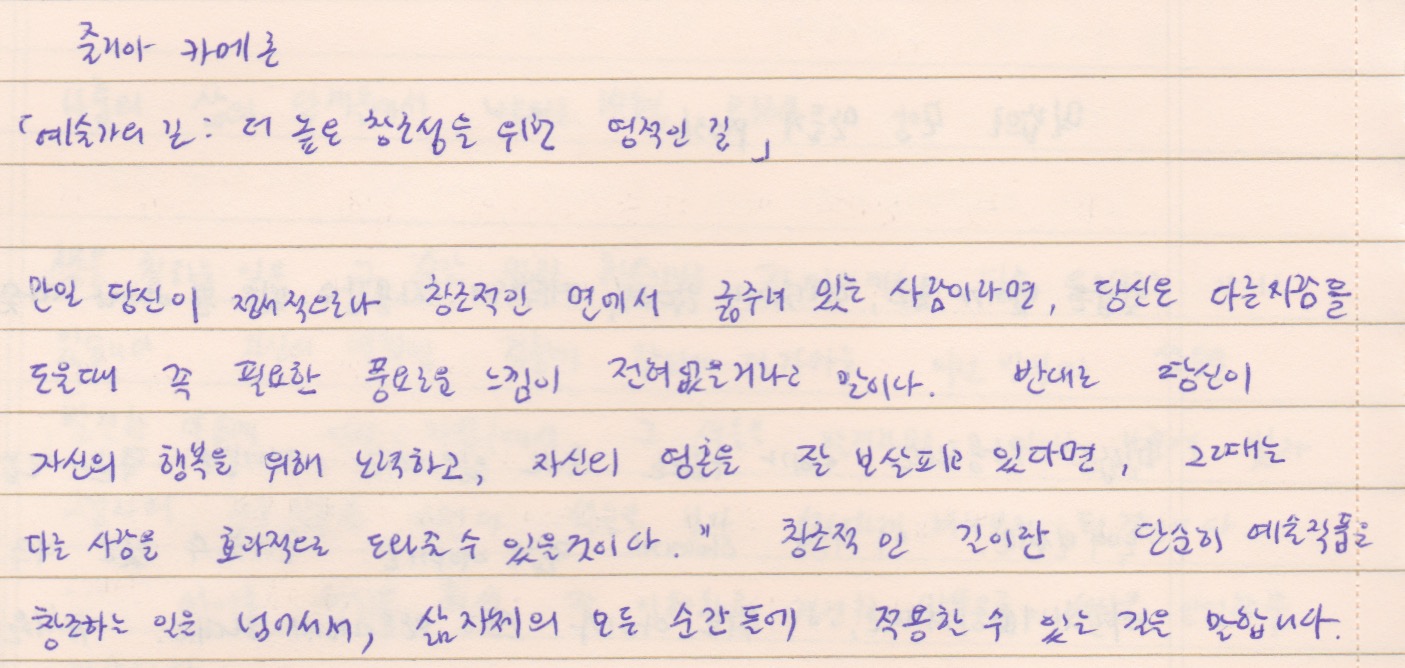 줄리아 카메론
「예술가의 길 : 더 높은 창조성을 위한 영적인 길」
만일 당신이 정신적으로나 창조적인 면에서 굶주려 있는 사람이라면, 당신은 다른사람을
도울때 꼭 필요한 풍요로운 느낌이 전혀없을거라고 말이다. 반대로 당신이
자신의 행복을 위해 노력하고, 자신의 영혼을 잘 보살피고 있다면, 그때는
다른 사람을 효과적으로 도와줄 수 있을것이다." 창조적인 길이란 단순히 예술작품을
창조하는 일을 넘어서서, 삶자체의 모든 순간들에 적용할 수 있는 길을 말합니다.